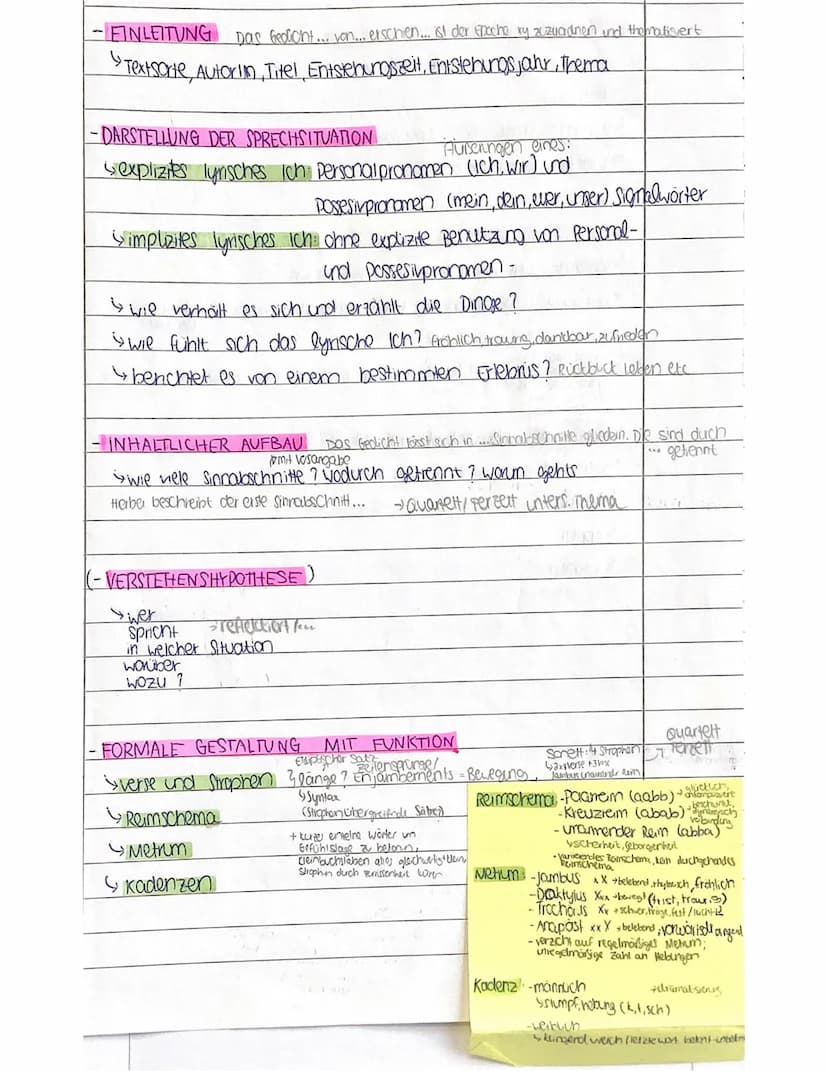 - EINLEITUNG Das Gedicht... von... erschien... ist der Epoche xy zuzuordnen und thematisiert
↳ Textsorte, Autorin, Titel, Entstehungszeit, Entstehungsjahr, Thema
- DARSTELLUNG DER SPRECHSITUATION
Äußerungen eines:
↳ explizites lyrisches Ich: Personalpronomen (ich, wir) und
Possesivpronomen (mein, dein, euer, unser) Signalwörter
↳ implizites lyrisches Ich: ohne explizite Benutzung von Personal-
und Possesivpronomen -
↳ wie verhält es sich und erzählt die Dinge?
↳ wie fühlt sich das lyrische Ich? fröhlich, traurig, dankbar, zufrieden
↳ berichtet es von einem bestimmten Erlebnis? Rückblick Leben etc
- INHALTLICHER AUFBAU Das Gedicht lässt sich in ... Sinnabschnitte gliedern. Die sind durch
... getrennt
↳ wie viele Sinnabschnitte? wodurch getrennt? worum gehts
Hierbei beschreibt der erste Sinnabschnitt... → Quartett/Terzett unters. Thema
(- VERSTEHENSHYPOTHESE)
↳ wer
spricht → reflektiert /...
in welcher Situation
worüber
wozu?
- FORMALE GESTALTUNG MIT FUNKTION
Quartett
Sonett: 4 Strophen → Terzett
Elliptischer Satz
Zeilensprünge/
↳ Verse und Strophen länge? Enjambements = Bewegung
↳ Syntax
(Strophenübergreifende Sätze)
↳ Reimschema
↳ Metrum
+ kurze einzelne Wörter um
Gefühlslage zu betonen,
↳ Kadenzen
Reimschema - Paarreim (aabb)
- Kreuzreim (abab)
- umarmender Reim (abba)
↳ sicherheit, geborgenheit
- variierendes Reimschema, kein durchgehendes
Reimschema
Metrum: - Jambus xX → belebend, rhythmisch, fröhlich
- Daktylus Xxx → bewegt (trist, traur.)
- Trochäus Xx → schwer, träge, fest
- Anapäst xxX → belebend, vorwärtsdrängend
- verzicht auf regelmäßiges Metrum;
unregelmäßige Zahl an Hebungen
Kadenz: - männlich
↳ stumpf, hebung (k, t, sch)
- weiblich
↳ klingend, weich (letzte wort